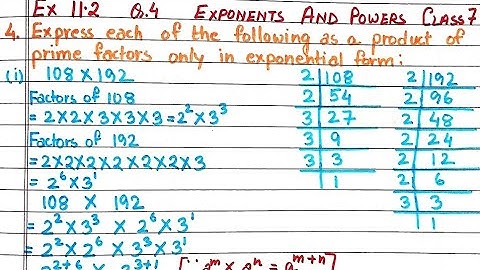 Ex 11.2 Q.4 EXPONENTS AND POWERS CLASS 7
4. Express each of the following as a product of
prime factors only in exponential form:
(i) 108 × 192
Factors of 108
= 2×2×3×3×3 = 2²×3³
Factors of 192
= 2×2×2×2×2×2×3
= 2⁶×3¹
108 × 192
= 2²×3³ × 2⁶×3¹
= 2²×2⁶ × 3³×3¹
2²⁺⁶ × 3³⁺¹ [∵ aᵐ × aⁿ = aᵐ⁺ⁿ]
2 | 108
2 | 54
3 | 27
3 | 9
3 | 3
1
2 | 192
2 | 96
2 | 48
2 | 24
2 | 12
2 | 6
3 | 3
1